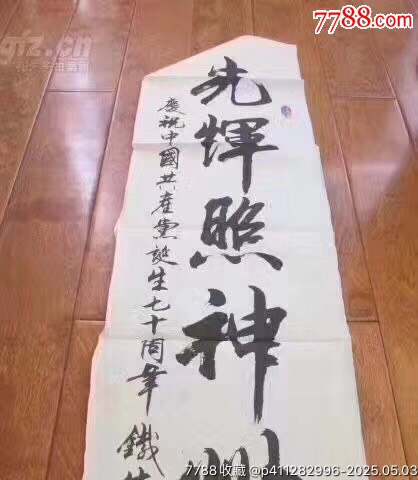 7788.com
光輝照神州
慶祝中國共產黨誕生七十周年 鐵
7788收藏 @p411282996-2025.05.03